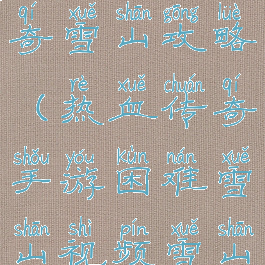 qí xuě shān gōng lüè
奇雪山攻略
rè xuè chuán qí
(热血传奇
shǒu yóu kùn nán xuě
手游困难雪
shān shì pín xuě shān
山视频雪山